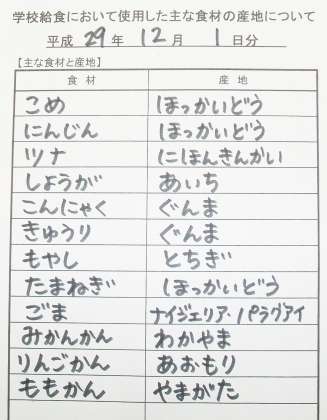 学校給食において使用した主な食材の産地について
平成 29 年 12 月 1 日分
【主な食材と産地】
食材 産地
こめ ほっかいどう
にんじん ほっかいどう
ツナ にほんきんかい
しょうが あいち
こんにゃく ぐんま
きゅうり ぐんま
もやし とちぎ
たまねぎ ほっかいどう
ごま ナイジェリア・パラグアイ
みかんかん わかやま
りんごかん あおもり
ももかん やまがた